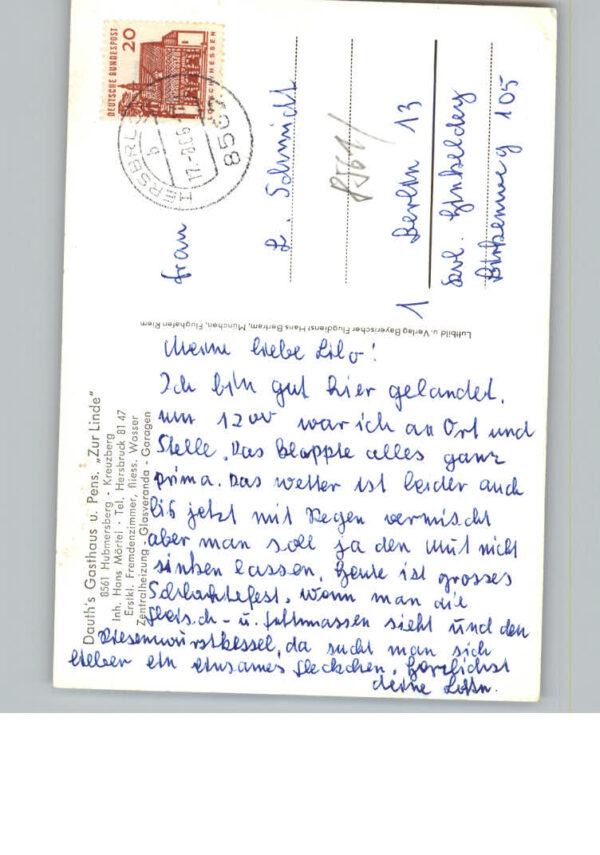 Dauth's Gasthaus u. Pens. „Zur Linde"
8561 Hubmersberg - Kreuzberg
Inh. Hans Mörtel · Tel. Hersbruck 81 47
Erstkl. Fremdenzimmer, fliess. Wasser
Zentralheizung - Glasveranda - Garagen
Meine liebe Lilo!
Ich bin gut hier gelandet,
um 12 00 war ich an Ort und
Stelle. Das klappte alles ganz
prima. Das Wetter ist leider auch
bis jetzt mit Regen vermischt
aber man soll ja den Mut nicht
sinken lassen. Heute ist grosses
Schlachtefest, wenn man die
Fleisch- u. Fettmassen sieht und den
Riesenwurstkessel, da sucht man sich
lieber ein einsames Fleckchen. Herzlichst
deine
Luftbild u. Verlag Bayerischer Flugdienst Hans Bertram, München, Flughafen Riem
DEUTSCHE BUNDESPOST
20
LORSCH/HESSEN
HERSBRUCK
b
8563
Frau
L. Schmidt
1 Berlin 13
Birkenweg 105